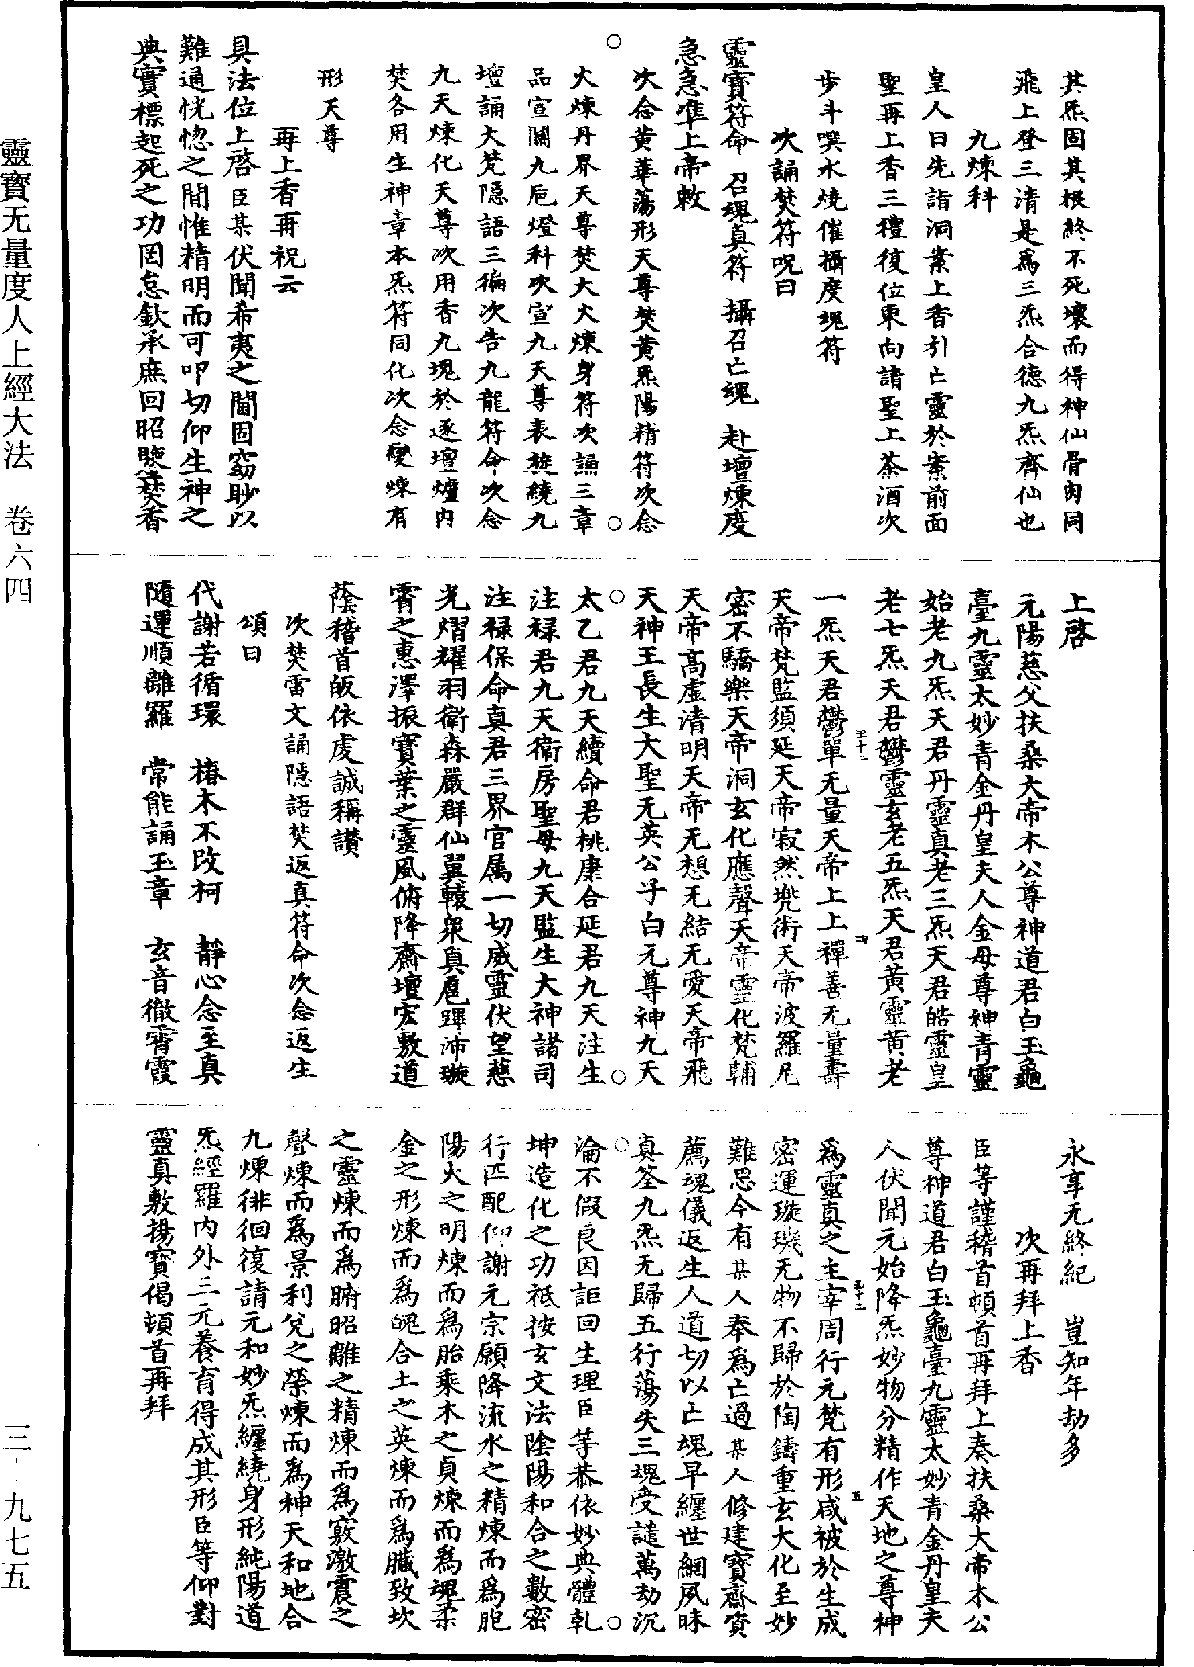 其炁固其根終不死壞而得神仙骨肉同
飛上登三清是爲三炁合德九炁齊仙也
九煉科
皇人曰先詣洞案上香引亡靈於案前面
聖再上香三禮復位東向請聖上茶酒次
步斗噀水燒催攝度魂符
次誦焚符呪曰
靈寶符命 召魂真符 攝召亡魂 赴壇煉度
急急準上帝敕
次念黃華蕩形天尊焚黃炁陽精符次念
火煉丹界天尊焚大火煉身符次誦三章
品宣關九巵燈科次宣九天尊表旋繞九
壇誦大梵隱語三徧次告九龍符命次念
九天煉化天尊次用香九塊於逐壇爐内
焚各用生神章本炁符同化次念變煉有
形天尊
再上香再祝云
具法位上啓臣某伏聞希夷之閫固窈眇以
難通恍惚之間惟精明而可叩切仰生神之
典實標起死之功罔怠欽承庶回昭鑒焚香
上啓
元陽慈父扶桑大帝木公尊神道君白玉龜
臺九靈太妙青金丹皇夫人金母尊神青靈
始老九炁天君丹靈真老三炁天君皓靈皇
老七炁天君鬱靈玄老五炁天君黃靈黃老
一炁天君鬱單无量天帝上上禪善无量壽
天帝梵監須延天帝寂然兠術天帝波羅尼
密不驕樂天帝洞玄化應聲天帝靈化梵輔
天帝高虛清明天帝无想无結无愛天帝飛
天神王長生大聖无英公子白元尊神九天
太乙君九天續命君桃康合延君九天注生
注禄君九天衛房聖母九天監生大神諸司
注禄保命真君三界官属一切威靈伏望慈
光熠耀羽衛森嚴群仙翼轅衆真扈蹕沛璇
霄之惠澤振寶葉之靈風俯降齋壇宏敷道
蔭稽首皈依虔誠稱讃
次焚雷文誦隱語焚返真符命次念返生
頌曰
代謝若循環 椿木不改柯 靜心念至真
隨運順離羅 常能誦玉章 玄音徹霄霞
永享无終紀 豈知年劫多
次再拜上香
臣等謹稽首頓首再拜上奏扶桑大帝木公
尊神道君白玉龜臺九靈太妙青金丹皇夫
人伏聞元始降炁妙物分精作天地之尊神
爲靈真之主宰周行元梵有形咸被於生成
密運璇璣无物不歸於陶鑄重玄大化至妙
難思今有某人奉爲亡過某人修建寶齋資
薦魂儀返生人道切以亡魂早纏世網夙昧
真筌九炁无歸五行蕩失三魂受譴萬劫沉
淪不假良因詎回生理臣等恭依妙典體乾
坤造化之功祇按玄文法陰陽和合之數密
行匹配仰謝元宗願降流水之精煉而爲胞
陽火之明煉而爲胎乘木之貞煉而爲魂柔
金之形煉而爲魄合土之英煉而爲臟致坎
之靈煉而爲腑昭離之精煉而爲竅激震之
聲煉而爲景利兌之榮煉而爲神天和地合
九煉徘徊復請元和妙炁纏繞身形純陽道
炁經羅内外三元養育得成其形臣等仰對
靈真敷揚寶偈頓首再拜
靈寶无量度人上經大法 卷六四
三·九七五